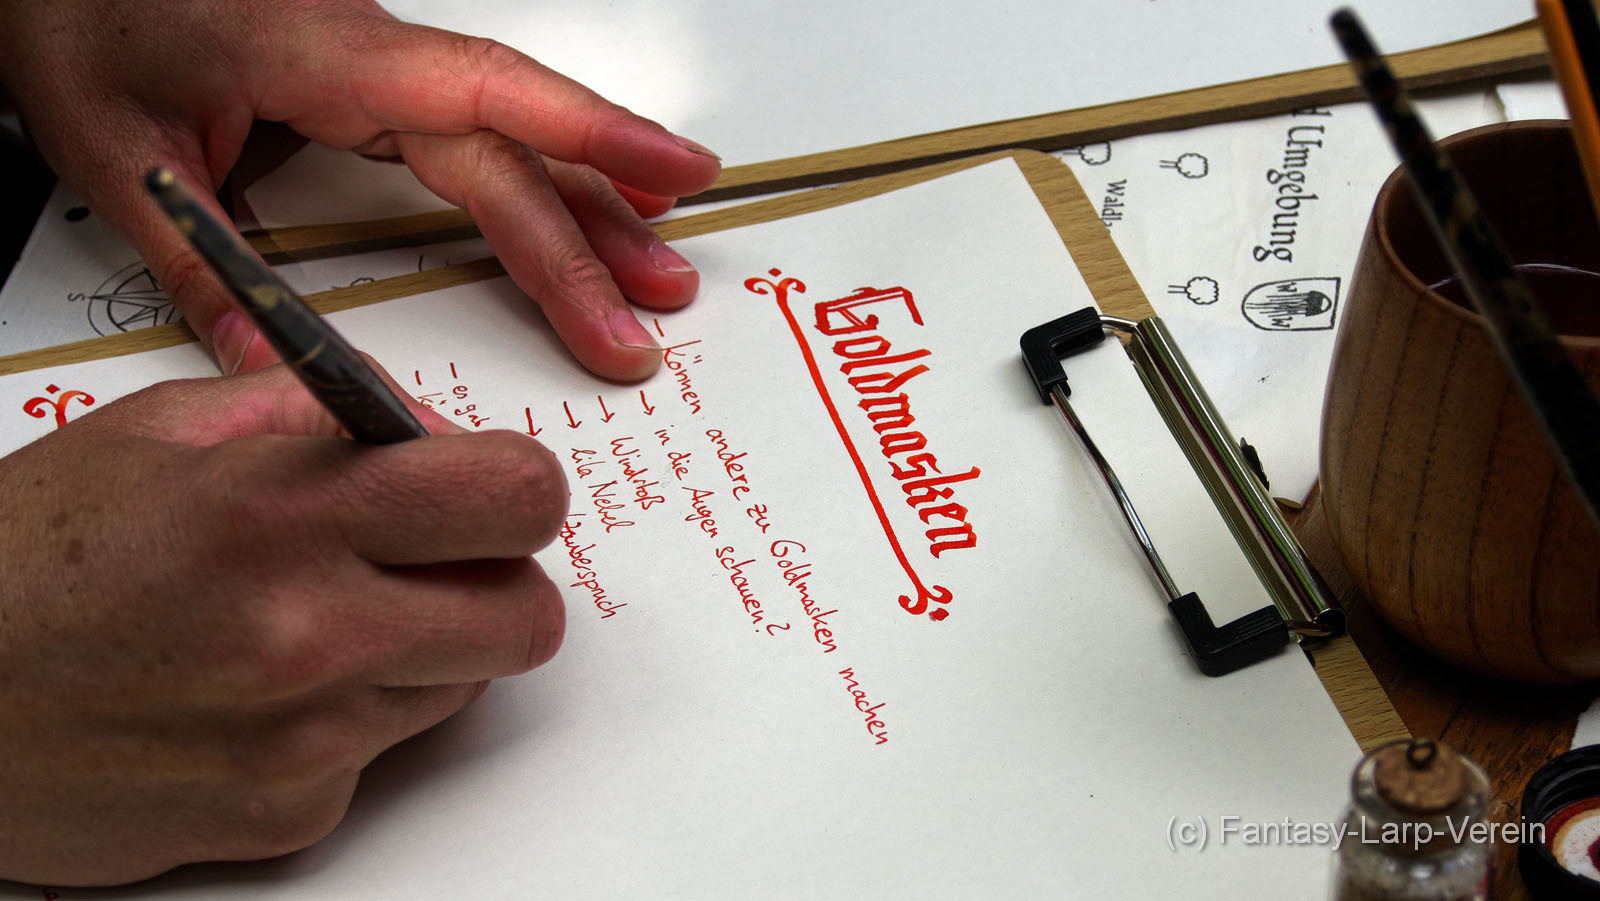 Goldmasken
- können andere zu Goldmasken machen
→ in die Augen schauen?
→ Windstoß
→ lila Nebel
→ /Zauberspruch
- es gab
Umgebung
W
W
S
(c) Fantasy-Larp-Verein